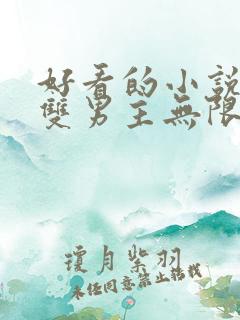 好看的小說
雙男主無限
瓊月紫羽
未經同意禁止轉載